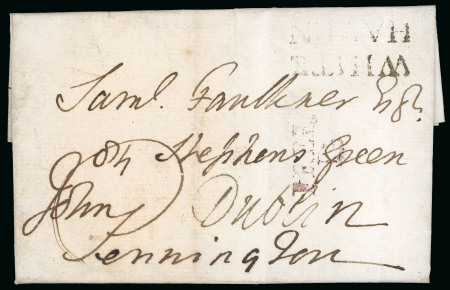 WHITE
HAVEN
Saml. Faulkner Esqr.
Stephens Green
Dublin
John
Pennington